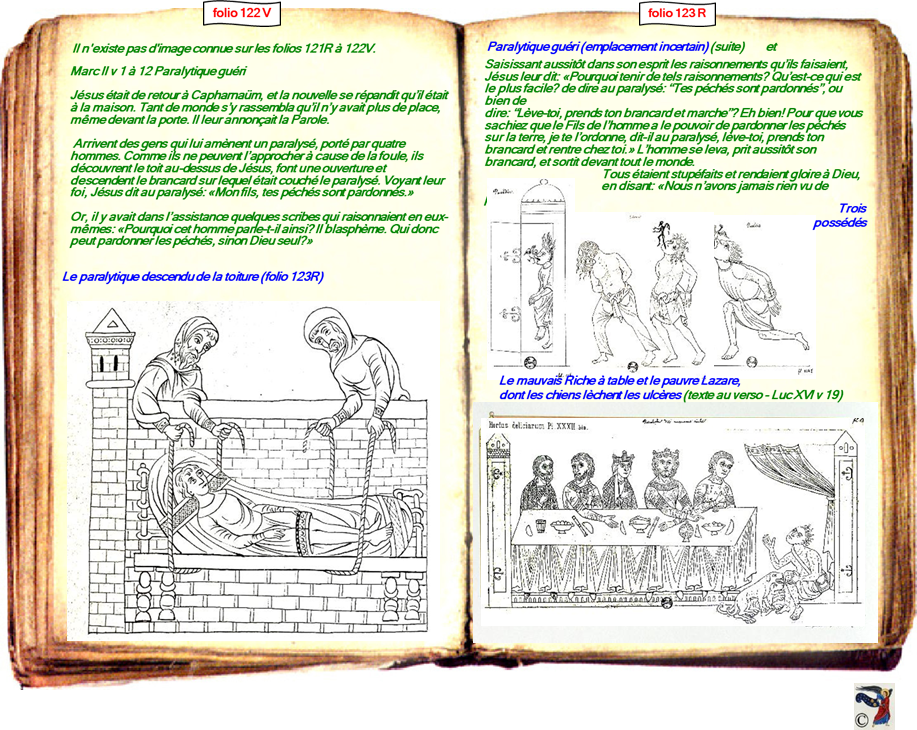 folio 122 V
Il n'existe pas d'image connue sur les folios 121R à 122V.
Marc II v 1 à 12 Paralytique guéri
Jésus était de retour à Capharnaüm, et la nouvelle se répandit qu'il était
à la maison. Tant de monde s'y rassembla qu'il n'y avait plus de place,
même devant la porte. Il leur annonçait la Parole.
Arrivent des gens qui lui amènent un paralysé, porté par quatre
hommes. Comme ils ne peuvent l'approcher à cause de la foule, ils
découvrent le toit au-dessus de Jésus, font une ouverture et
descendent le brancard sur lequel était couché le paralysé. Voyant leur
foi, Jésus dit au paralysé: «Mon fils, tes péchés sont pardonnés.»
Or, il y avait dans l'assistance quelques scribes qui raisonnaient en eux-
mêmes: «Pourquoi cet homme parle-t-il ainsi? Il blasphème. Qui donc
peut pardonner les péchés, sinon Dieu seul?»
Le paralytique descendu de la toiture (folio 123R)
folio 123 R
Paralytique guéri (emplacement incertain) (suite) et
Saisissant aussitôt dans son esprit les raisonnements qu'ils faisaient,
Jésus leur dit: «Pourquoi tenir de tels raisonnements? Qu'est-ce qui est
le plus facile? de dire au paralysé: "Tes péchés sont pardonnés", ou
bien de
dire: "Lève-toi, prends ton brancard et marche"? Eh bien! Pour que vous
sachiez que le Fils de l'homme a le pouvoir de pardonner les péchés
sur la terre, je te l'ordonne, dit-il au paralysé, lève-toi, prends ton
brancard et rentre chez toi.» L'homme se leva, prit aussitôt son
brancard, et sortit devant tout le monde.
Tous étaient stupéfaits et rendaient gloire à Dieu,
en disant: «Nous n'avons jamais rien vu de
Trois
possédés
Le mauvais Riche à table et le pauvre Lazare,
dont les chiens lèchent les ulcères (texte au verso - Luc XVI v 19)
Hortus deliciarum Pl XXXIII bis.
©